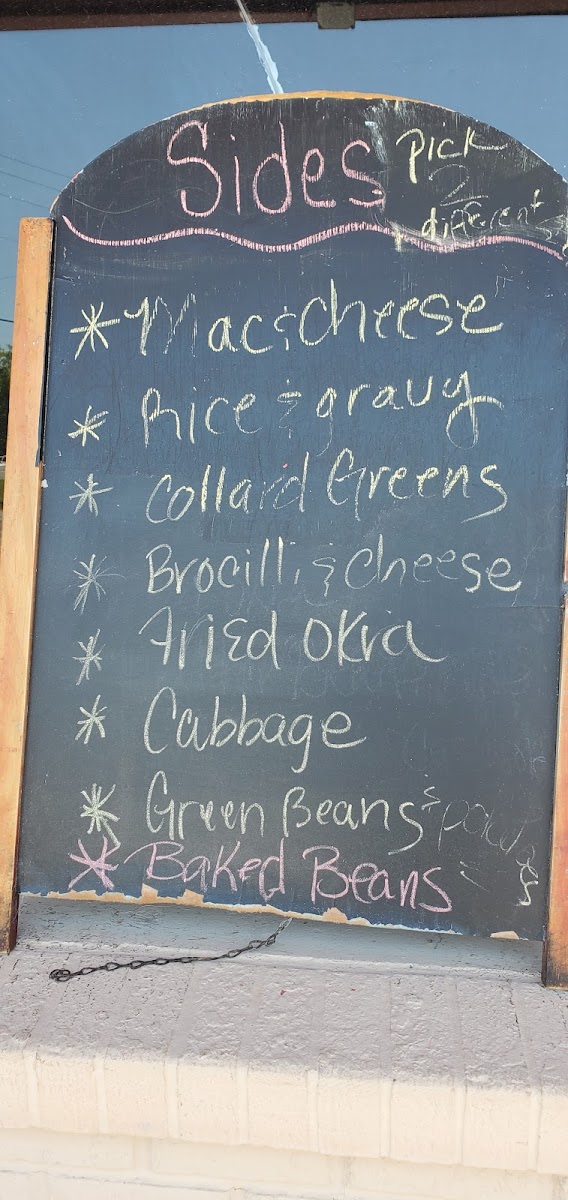 Sides Pick
2
different
* Mac & Cheese
* Rice & gravy
* Collard Greens
* Brocilli & cheese
* Fried Okra
* Cabbage
* Green Beans &
* Baked Beans